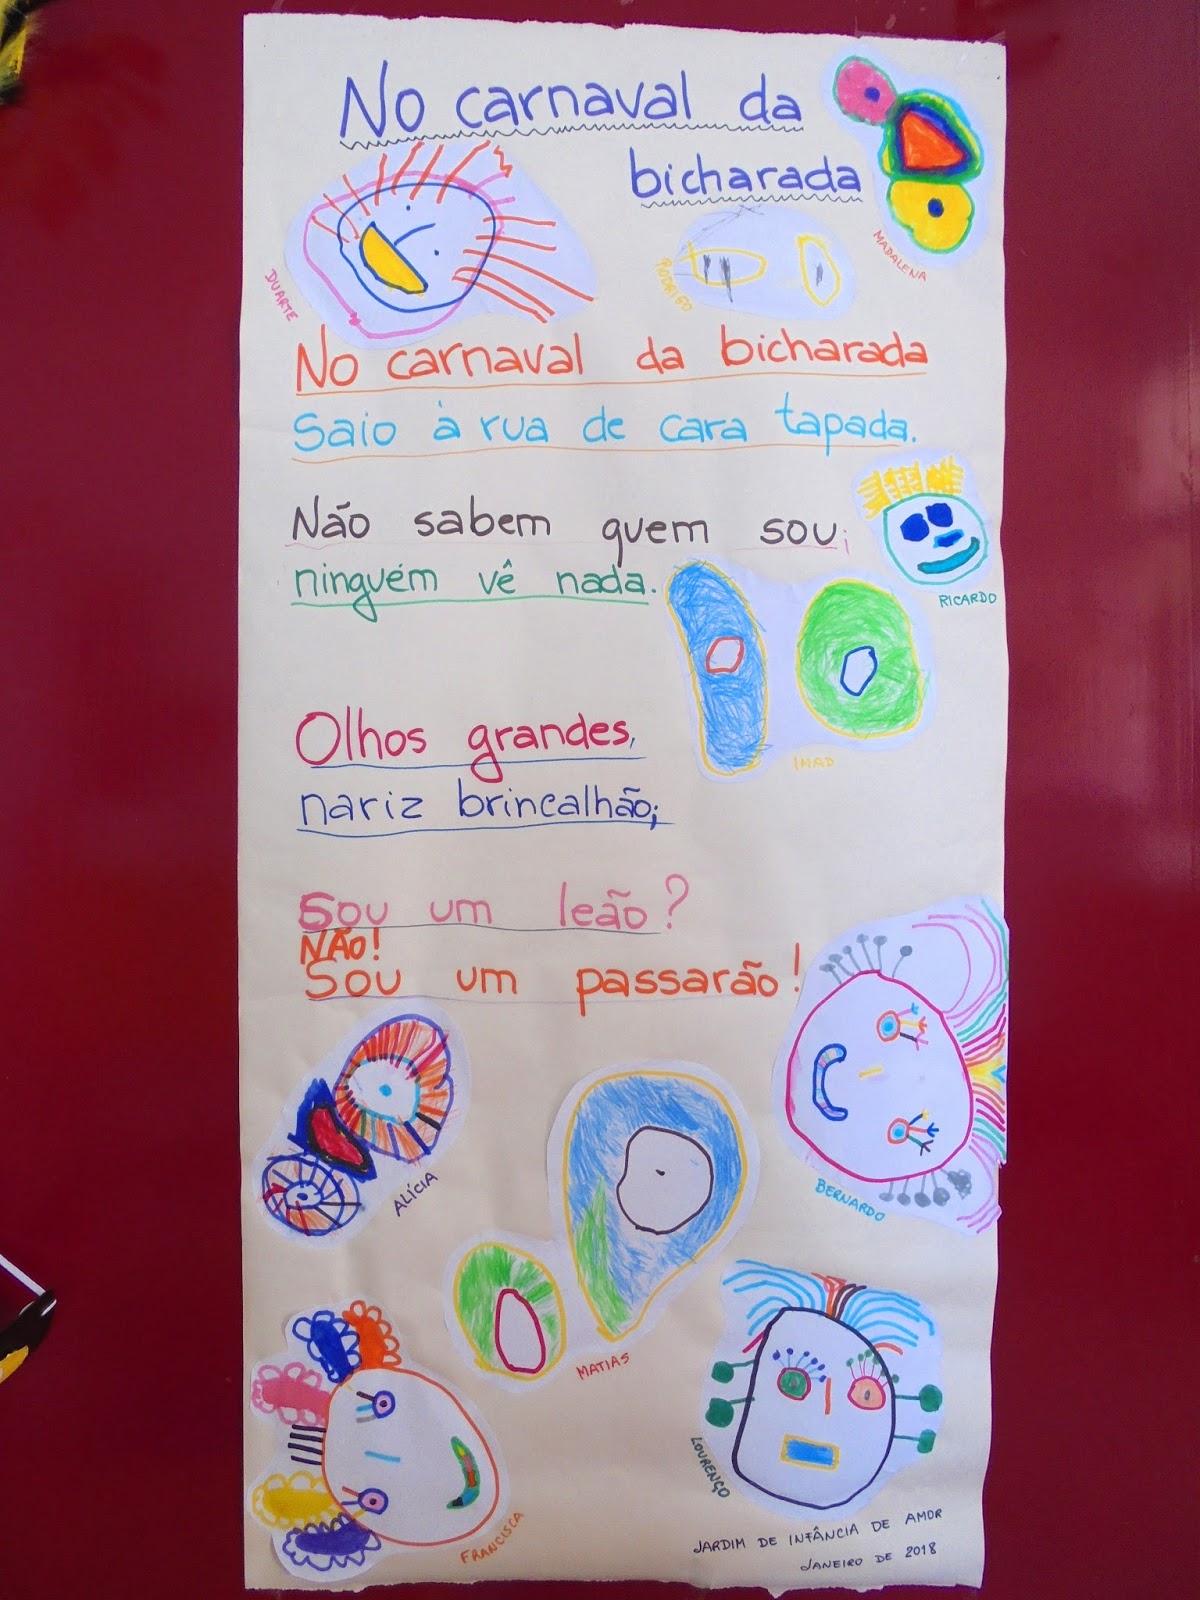 No carnaval da
bicharada
MADALENA
DUARTE
RODRIGO
No carnaval da bicharada
Saio à rua de cara tapada.
Não sabem quem sou;
ninguém vê nada.
RICARDO
IMAD
Olhos grandes,
nariz brincalhão;
Sou um leão?
NÃO!
Sou um passarão!
ALÍCIA
BERNARDO
MATIAS
LOURENÇO
FRANCISCA
JARDIM DE INFÂNCIA DE AMOR
JANEIRO DE 2018